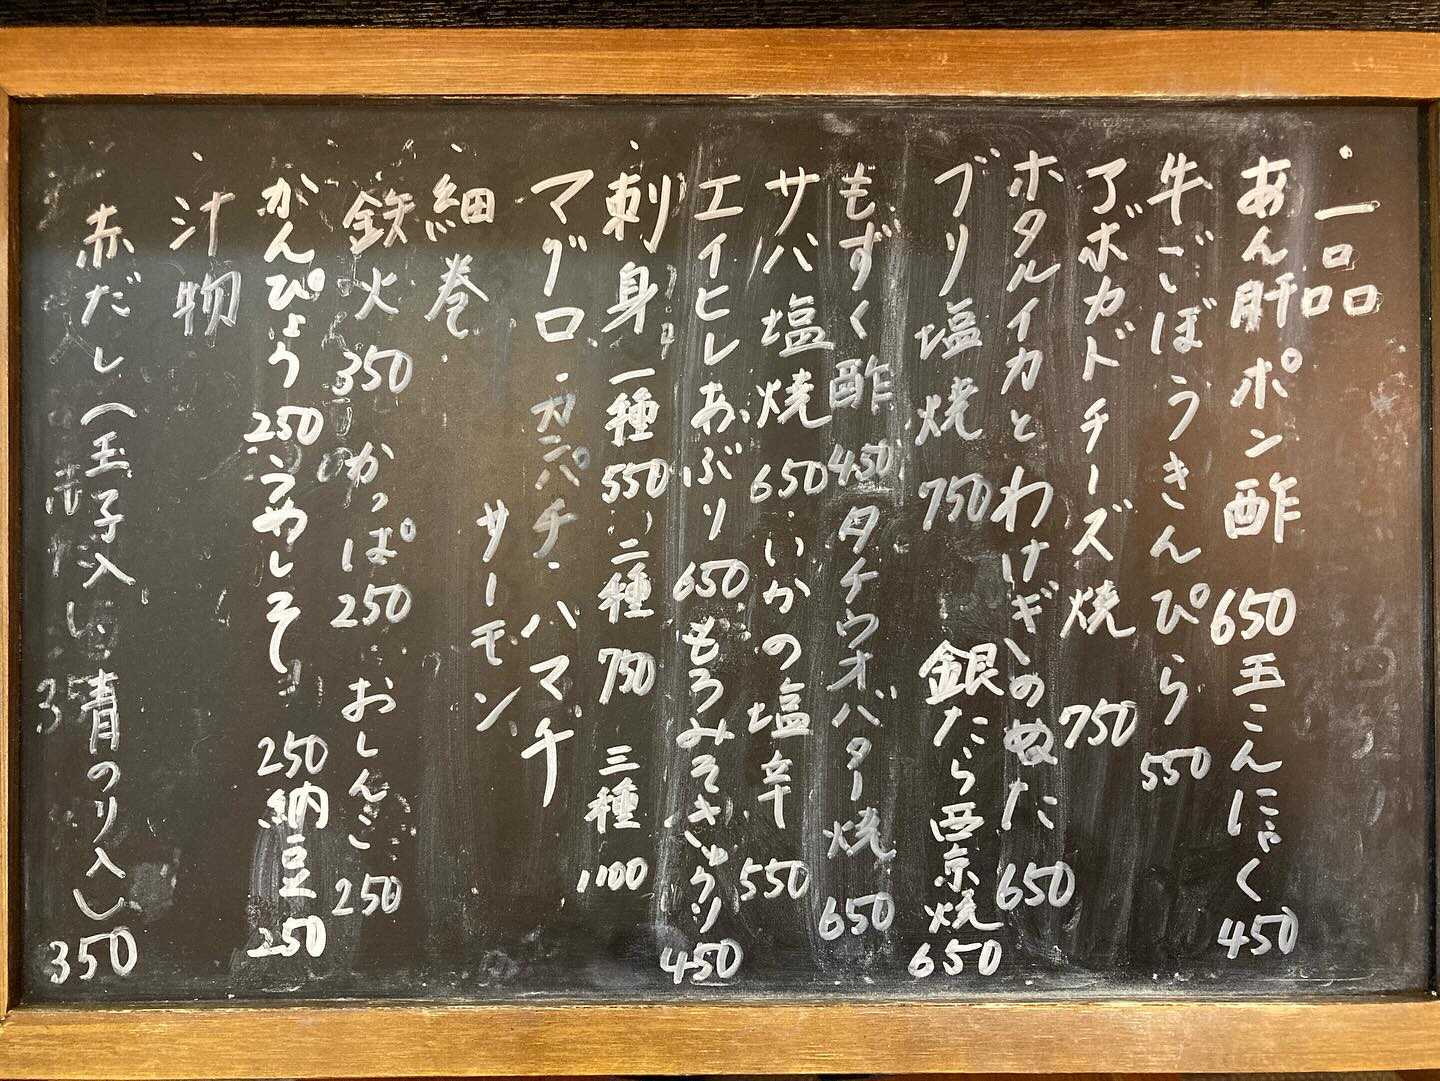 ・一品
あん肝ポン酢 650 玉こんにゃく 450
牛ごぼうきんぴら 550
アボカドチーズ焼 750
ホタルイカとわけぎのぬた 650
ブリ塩焼 750 銀だら西京焼 650
もずく酢 450 タチウオバター焼 650
サバ塩焼 650・いかの塩辛 550
エイヒレあぶり 650 もろみそきゅうり 450
・刺身 一種 550 二種 750 三種 1,100
マグロ・カンパチ・ハマチ
サーモン
・細巻
鉄火 350 かっぱ 250 おしんこ 250
かんぴょう 250 うめしそ 250 納豆 250
・汁物
赤だし(玉子入い 青のり入し 350